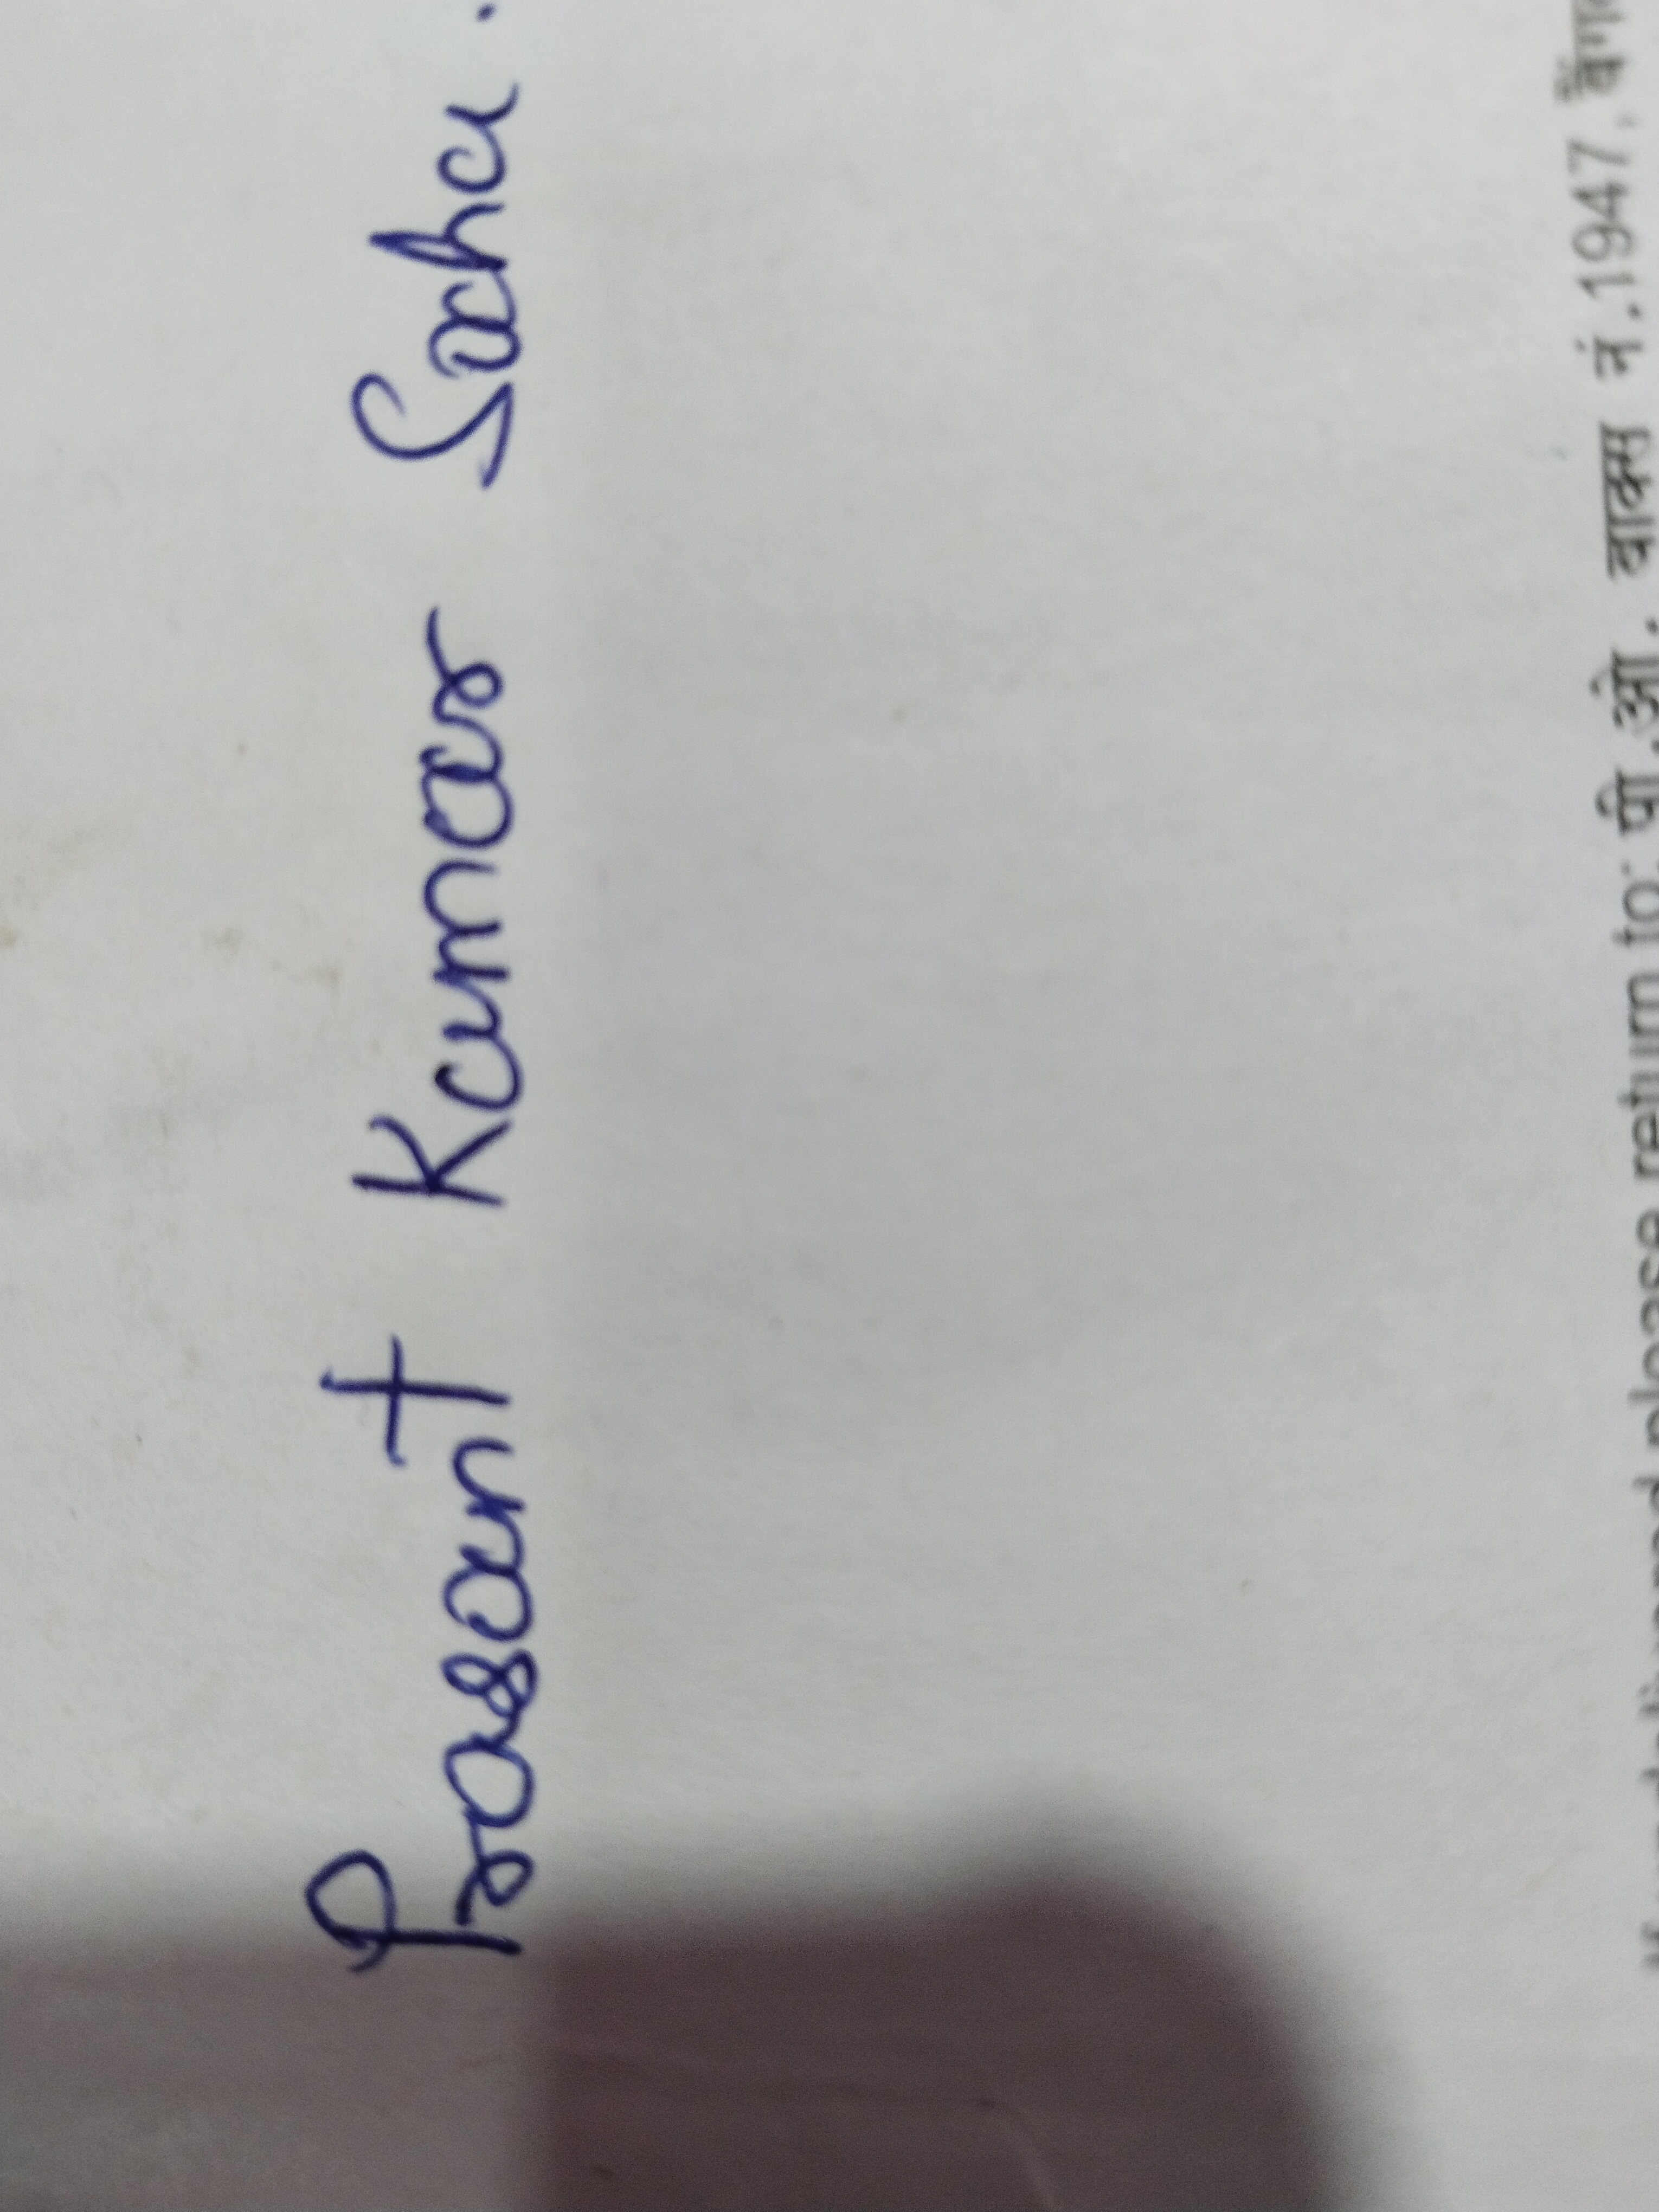 Prasant Kumar Saha.
please return to: पी.ओ. बाक्स नं.1947,